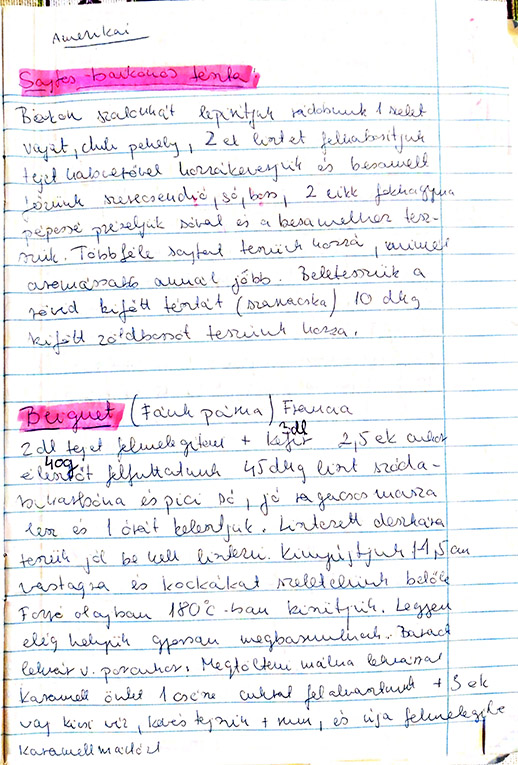 Amerikai
Sajtos-baconos tészta
Bacon szalonnát lepirítjuk rádobunk 1 szelet
vaját, chili pehely, 2 ek lisztet felhabosítjuk
tejet habverővel hozzákeverjük és besamell
szerecsendió, só, bors, 2 cikk fokhagyma
pépessé préseljük sóval és a besamelhez tesz-
szük. Többféle sajtot teszünk hozzá, minél
annál jobb. Beletesszük a
rövid kifőtt tésztát (szarvacska) 10 dkg
kifőtt zöldborsót teszünk hozzá.
Beignet (Fánk párna) Francia
2 dl tejet felmelegítem + 3 dl kefír 2,5 ek cukor
40g élesztőt felfuttatunk 45 dkg liszt szóda-
bikarbóna és pici só, jó ragacsos massza
lesz és 1 órát kelesztjük. Lisztezett deszkára
teszük jól be kell lisztezni. Kinyújtjuk 1-1,5 cm
vastagra és kockákat szeletelünk belőle
Forró olajban 180°C-ban kisütjük. Legyen
elég helyük gyorsan megbarnulnak. Barack
lekvár v. porcukor. Megtölteni málna lekvárral
Karamell öntet 1 csésze cukrot felolvasztunk + 3 ek
vaj kicsi víz, kevés tejszín + rum, és újra felmelegítve